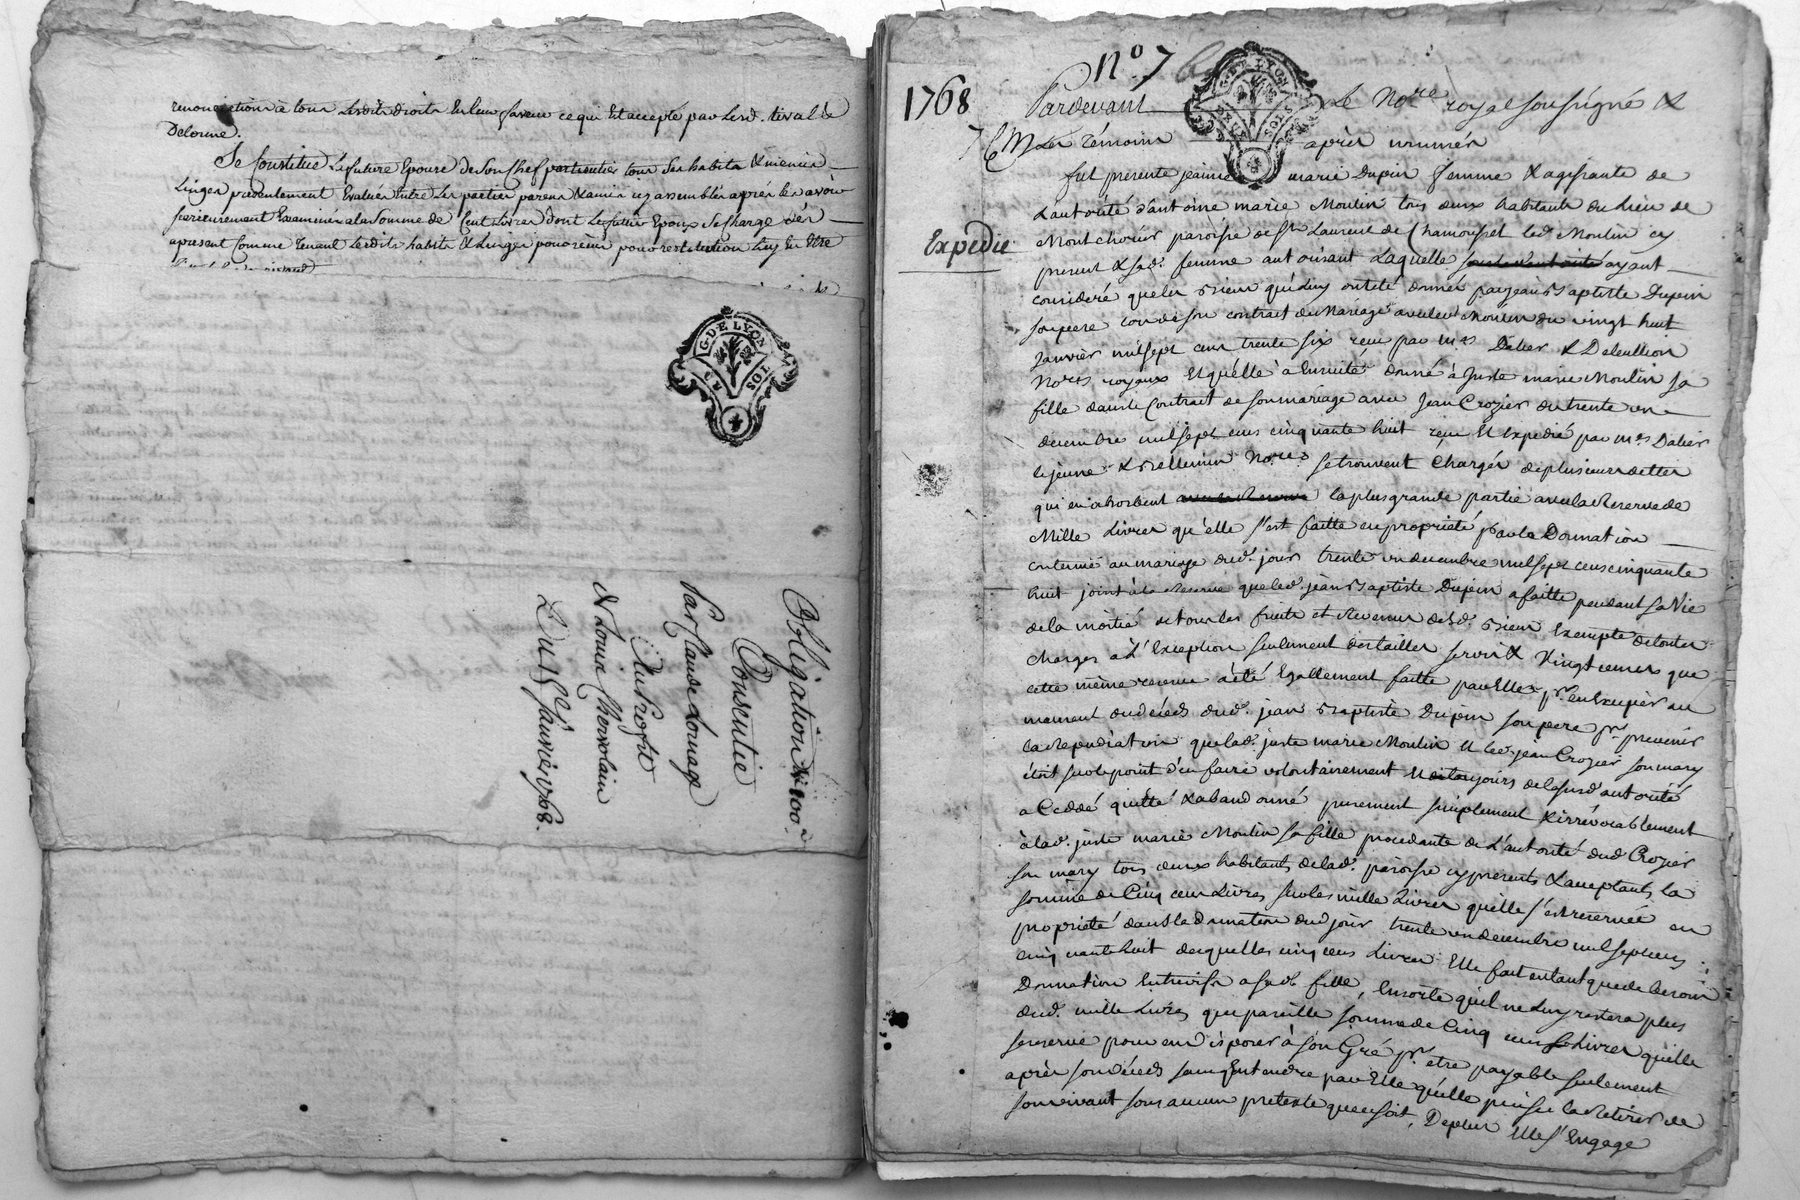 renonciation à tous lesdits droits en leur faveur ce qui est accepté par lesd. tival &
Delorme.
Se Constitue la future Epouse de son chef particulier tous ses habits & menus
Linges presentement Evalués entre les parties parens & amis icy assemblés après les avoir
serieusement Examinés a la somme de Cent Livres dont le futur Epoux se charge dès
apresent Comme tenant lesdits habits & Linges pour restitution en Etre
G. DE LYON
UN SOL
Obligation de 100
Consentie
Par Claude Lornage
Au Profit
de Louis Chervolain
Du 15e Janvier 1768.
1768
No. 7
G. DE LYON
DEUX SOLS
Pardevant Le Nore royal soussigné &
Les témoins après només
fut presente jeanne marie Dupin femme & agissante de
L'autorité d'antoine marie Moulin tous deux habitants du Lieu de
Expedié
Montchorier paroisse de St Laurent de Chamousset led. Moulin icy
present & sad. femme autorisant Laquelle ayant
consideré que les Biens qui luy ont eté donnés par jean Baptiste Dupin
son pere lors de son contrat de Mariage avec led. Moulin du vingt huit
Janvier mil sept cens trente six reçu par mes Dalier &
Nores royaux et qu'elle à Ensuite donné à Juste marie Moulin sa
fille dans le Contract de son mariage avec Jean Crozier du trente un
decembre mil sept cens cinquante huit reçu et Expedié par mes Dalier
le jeune & Nores se trouvent chargés de plusieurs dettes
qui en absorbent la plus grande partie avec la Reserve de
Mille Livres qu'elle s'est faitte en proprieté par la Donnation
contenue au mariage dud. jour trente un decembre mil sept cens cinquante
huit joint à la Reserve que led. jean Baptiste Dupin a faitte pendant sa Vie
de la moitié de tous les fruits et Revenus desd. Biens Exempte de toutes
charges à L'Exception seulement des tailles servis & Vingtiemes que
cette même reserve a été Egallement faitte par Elle pr en Exuper au
moment du décès dud. jean Baptiste Dupin son pere pr prevenir
la Repudiation que lad. juste marie Moulin et led. jean Crozier son mary
étoit sur le point d'en faire volontairement et toujours de lasusd. autorité
a Ceddé quitté & abandonné purement simplement & irrévocablement
à lad. juste marie Moulin sa fille procedante de L'autorité dud. Crozier
son mary tous deux habitants de lad. paroisse icy presents & acceptants la
somme de Cinq cens Livres sur les mille Livres qu'elle s'est reservée en
proprieté dans la donnation dud. jour trente un decembre mil sept cens
cinquante huit desquelles cinq cens Livres Elle fait en tant que de besoin
Donnation Entrevifs a sad. fille, Ensorte qu'il ne luy restera plus
dud. mille Livres que pareille somme de Cinq cens Livres qu'elle
se reserve pour en disposer à son Gré pr etre payable seulement
après son décès sans Entendre par Elle qu'elle puisse la Retirer de
son vivant sous aucun preteste que ce soit, De plus Elle s'Engage